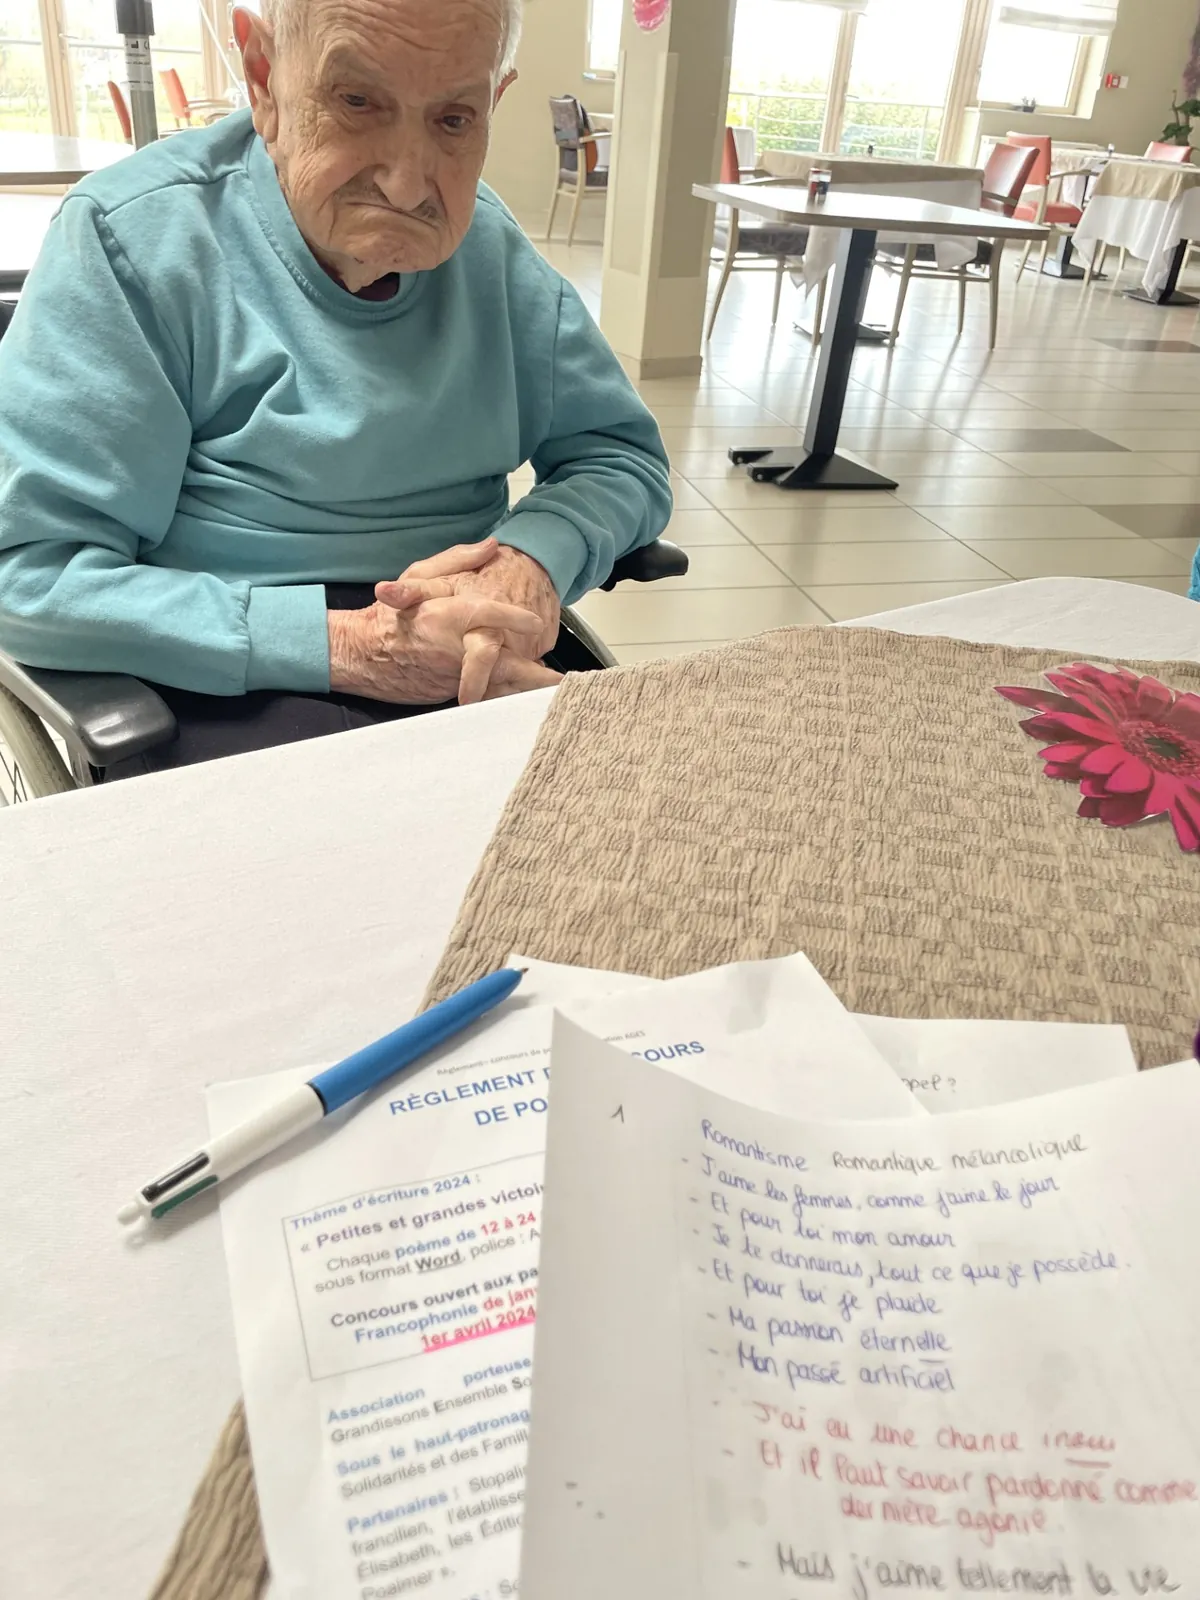 Règlement – concours de
AGES
RÈGLEMENT
COURS
DE PO
Thème d'écriture 2024 :
« Petites et grandes
Chaque poème de 12 à 24
sous format Word, police : A
Concours ouvert aux
Francophonie de
1er avril 2024
Association porteuse
Grandissons Ensemble
Sous le haut-patronag
Solidarités et des Famill
Partenaires :
francilien,
Élisabeth, les
Poaimer ».
1
Romantisme Romantique mélancolique
- J'aime les femmes, comme j'aime le jour
- Et pour toi mon amour
- Je te donnerais, tout ce que je possède.
- Et pour toi je plaide
- Ma passion éternelle
- Mon passé artificiel
- J'ai eu une chance inouï
- Et il faut savoir pardonné comme
dernière agonie.
- Mais j'aime tellement la vie